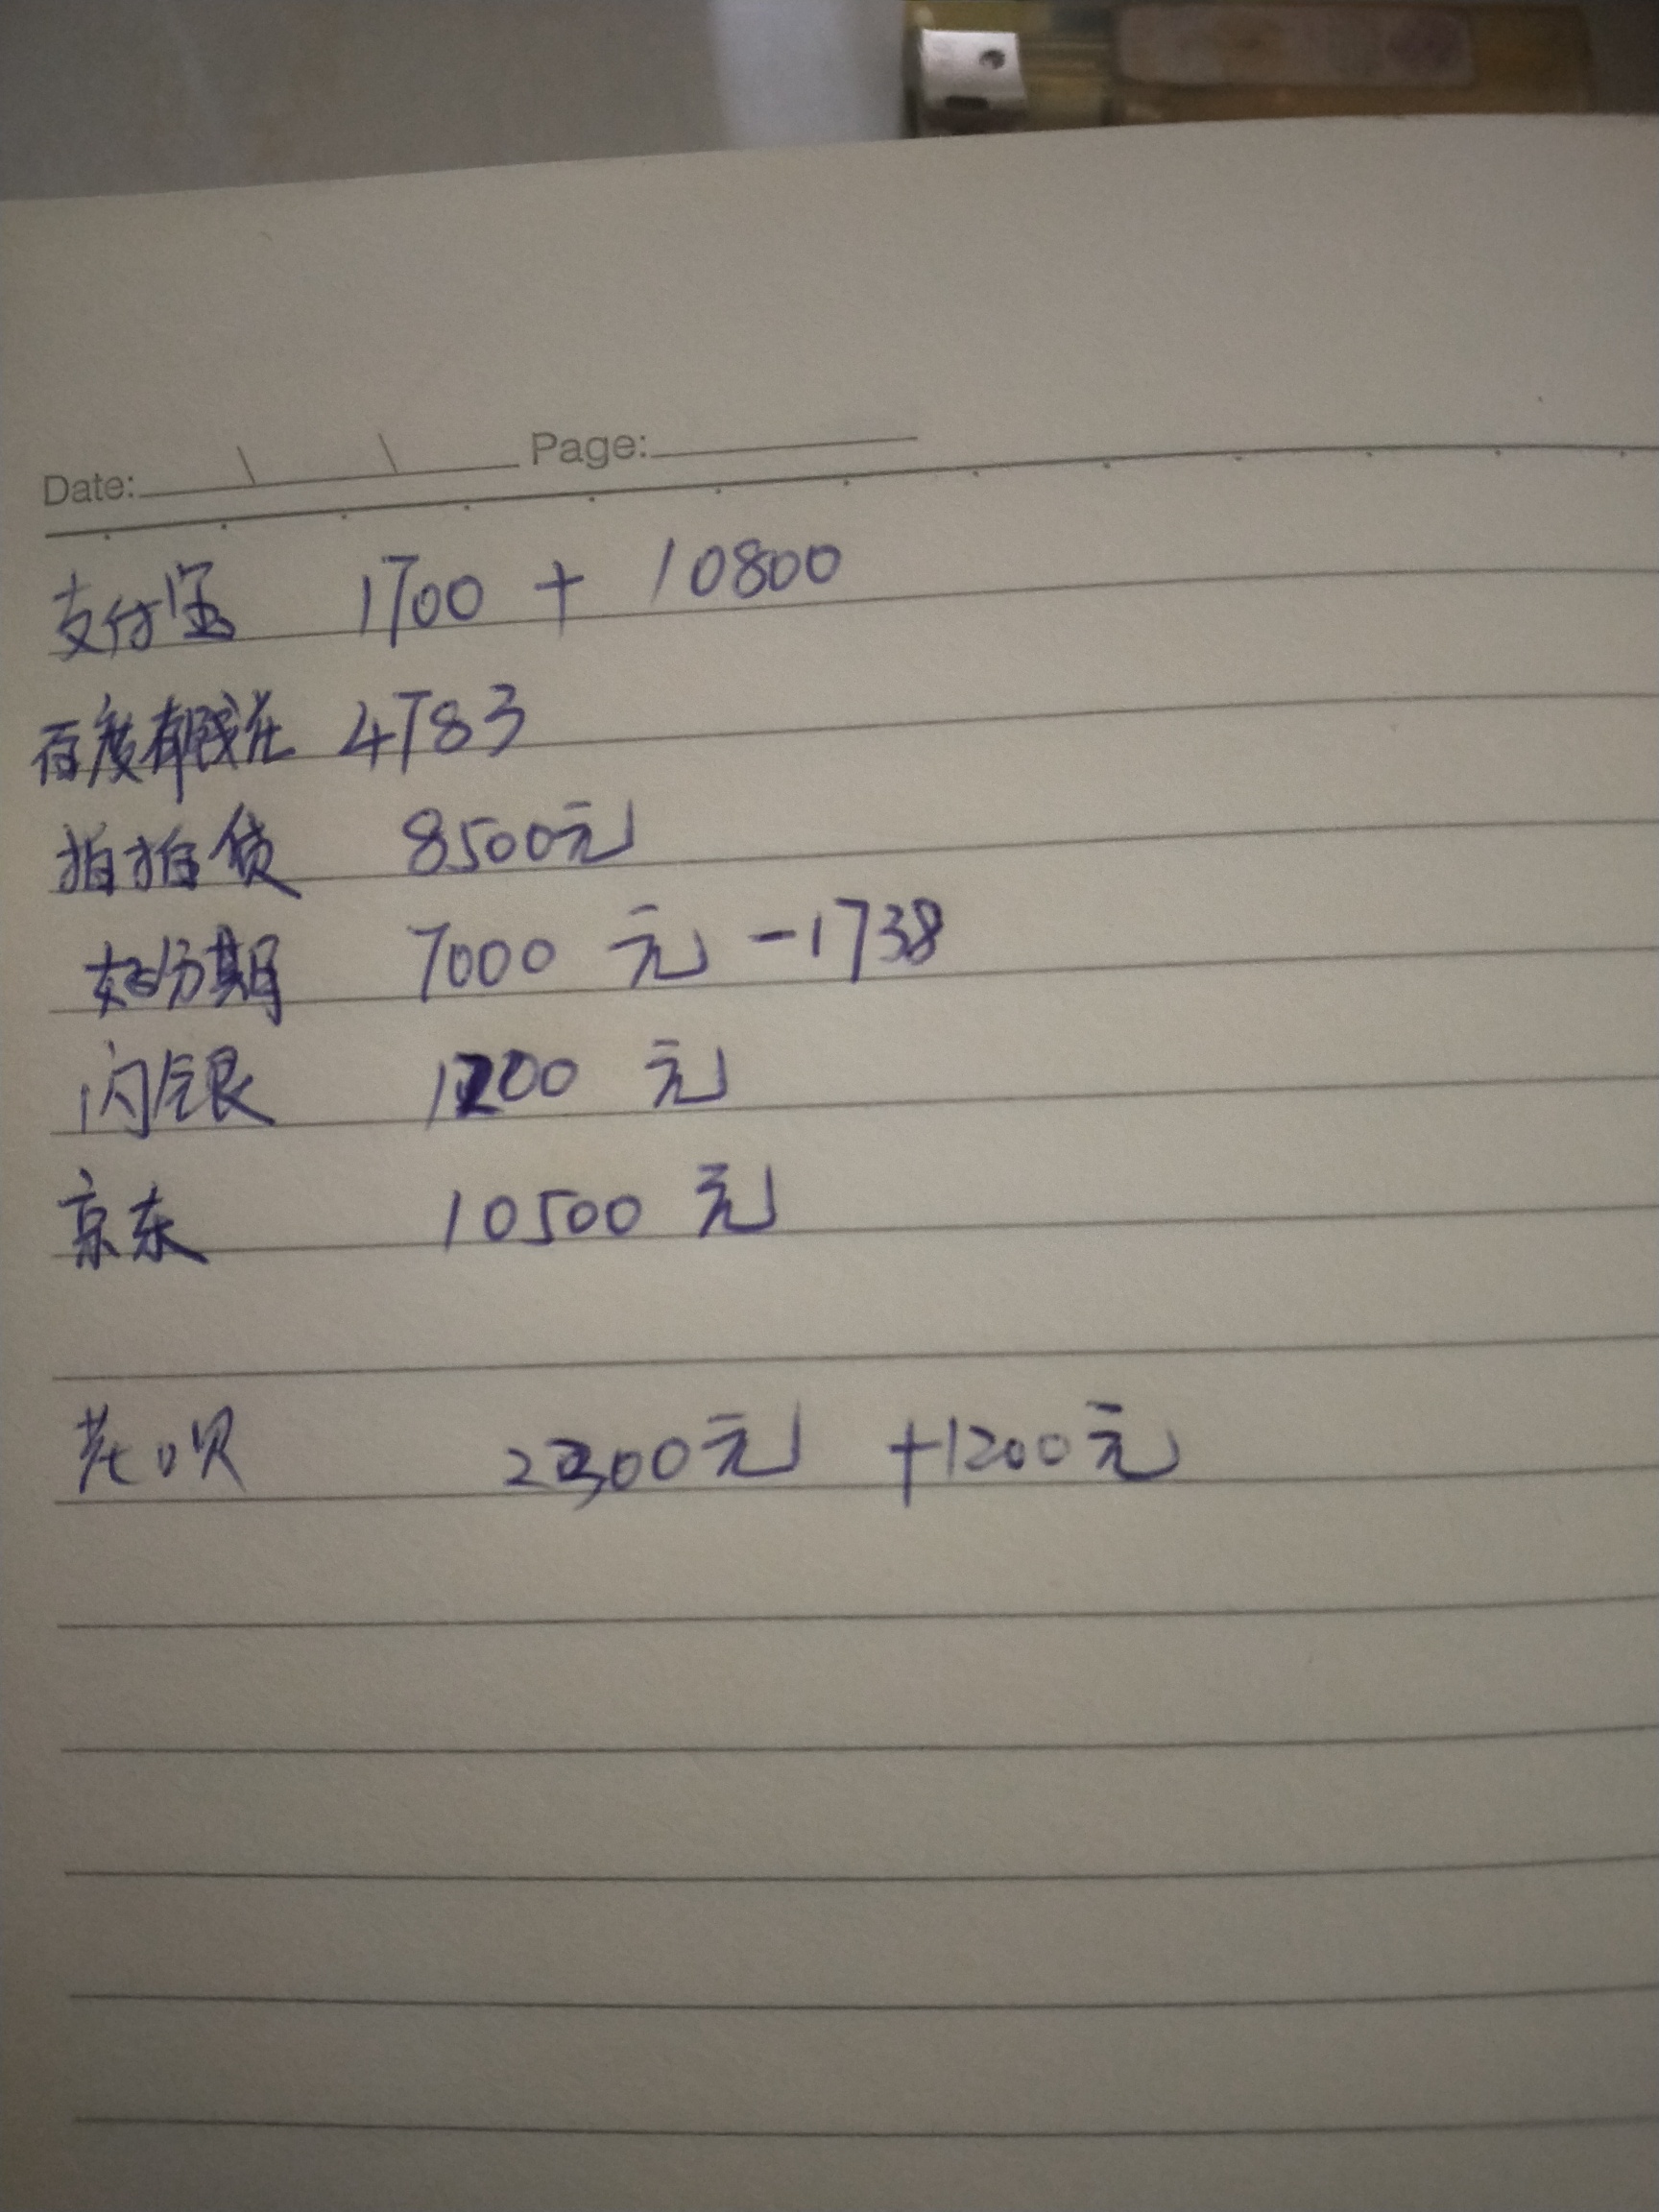 Date: Page:
支付宝 1700 + 10800
百度有钱花 4783
拍拍贷 8500元
好分期 7000 元 -1738
闪银 1200 元
京东 10500 元
花呗 2300元 +1200元